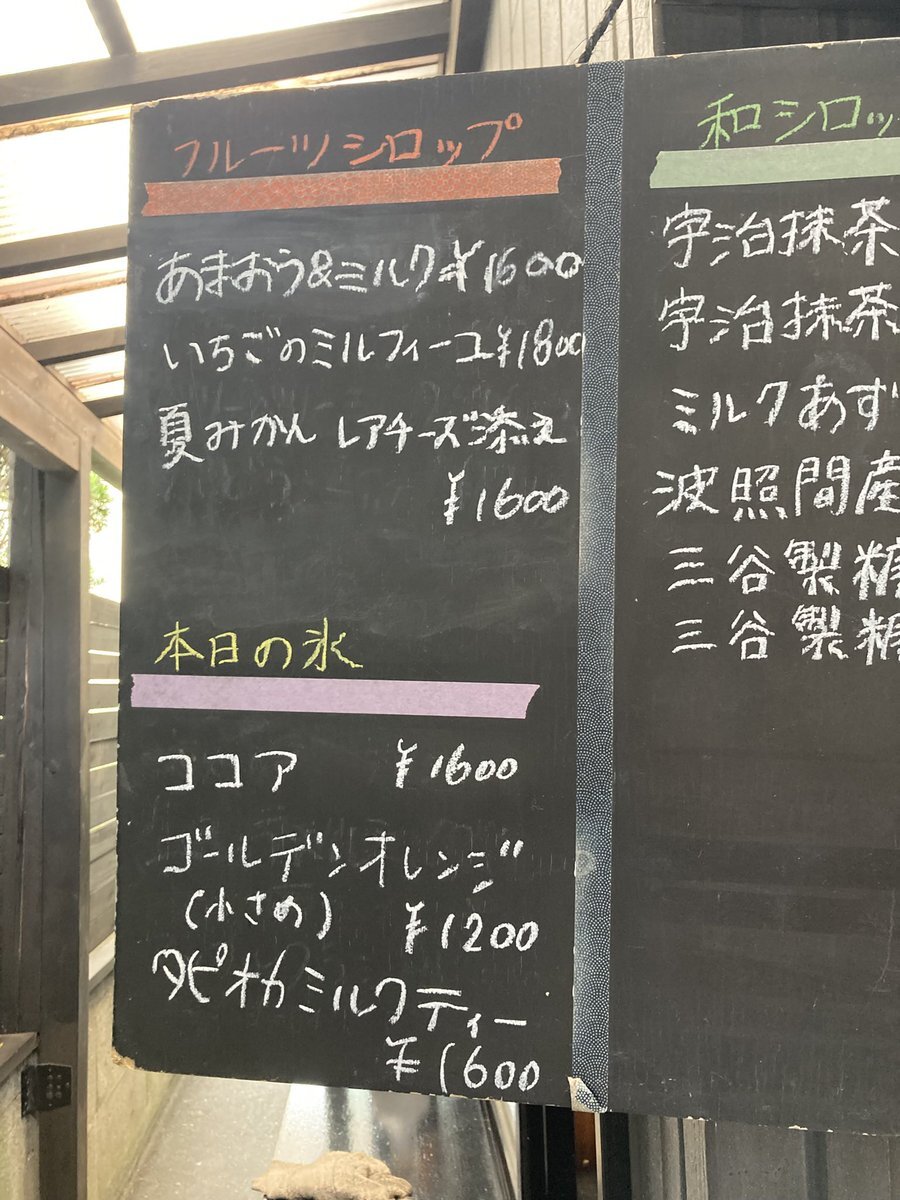 フルーツシロップ
あまおう&ミルク ¥1600
いちごのミルフィーユ ¥1800
夏みかん レアチーズ添え
¥1600
本日の氷
ココア ¥1600
ゴールデンオレンジ
(小さめ) ¥1200
タピオカミルクティー
¥1600
和シロッ
宇治抹茶
宇治抹茶
ミルクあず
波照間産
三谷製糖
三谷製糖